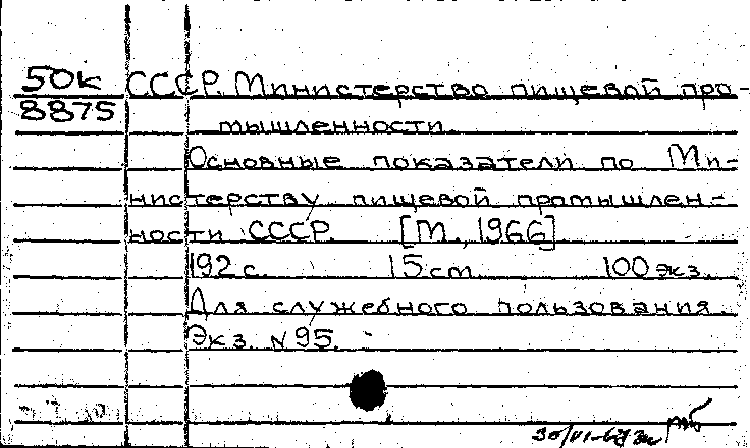 50к СССР. Министерство пищевой про-
8875 мышленности.
Основные показатели по Ми-
нистерству пищевой промышлен-
ности СССР. [М., 1966]
192 с. 15 см. 100 экз.
Для служебного пользования.
Экз. N 95.